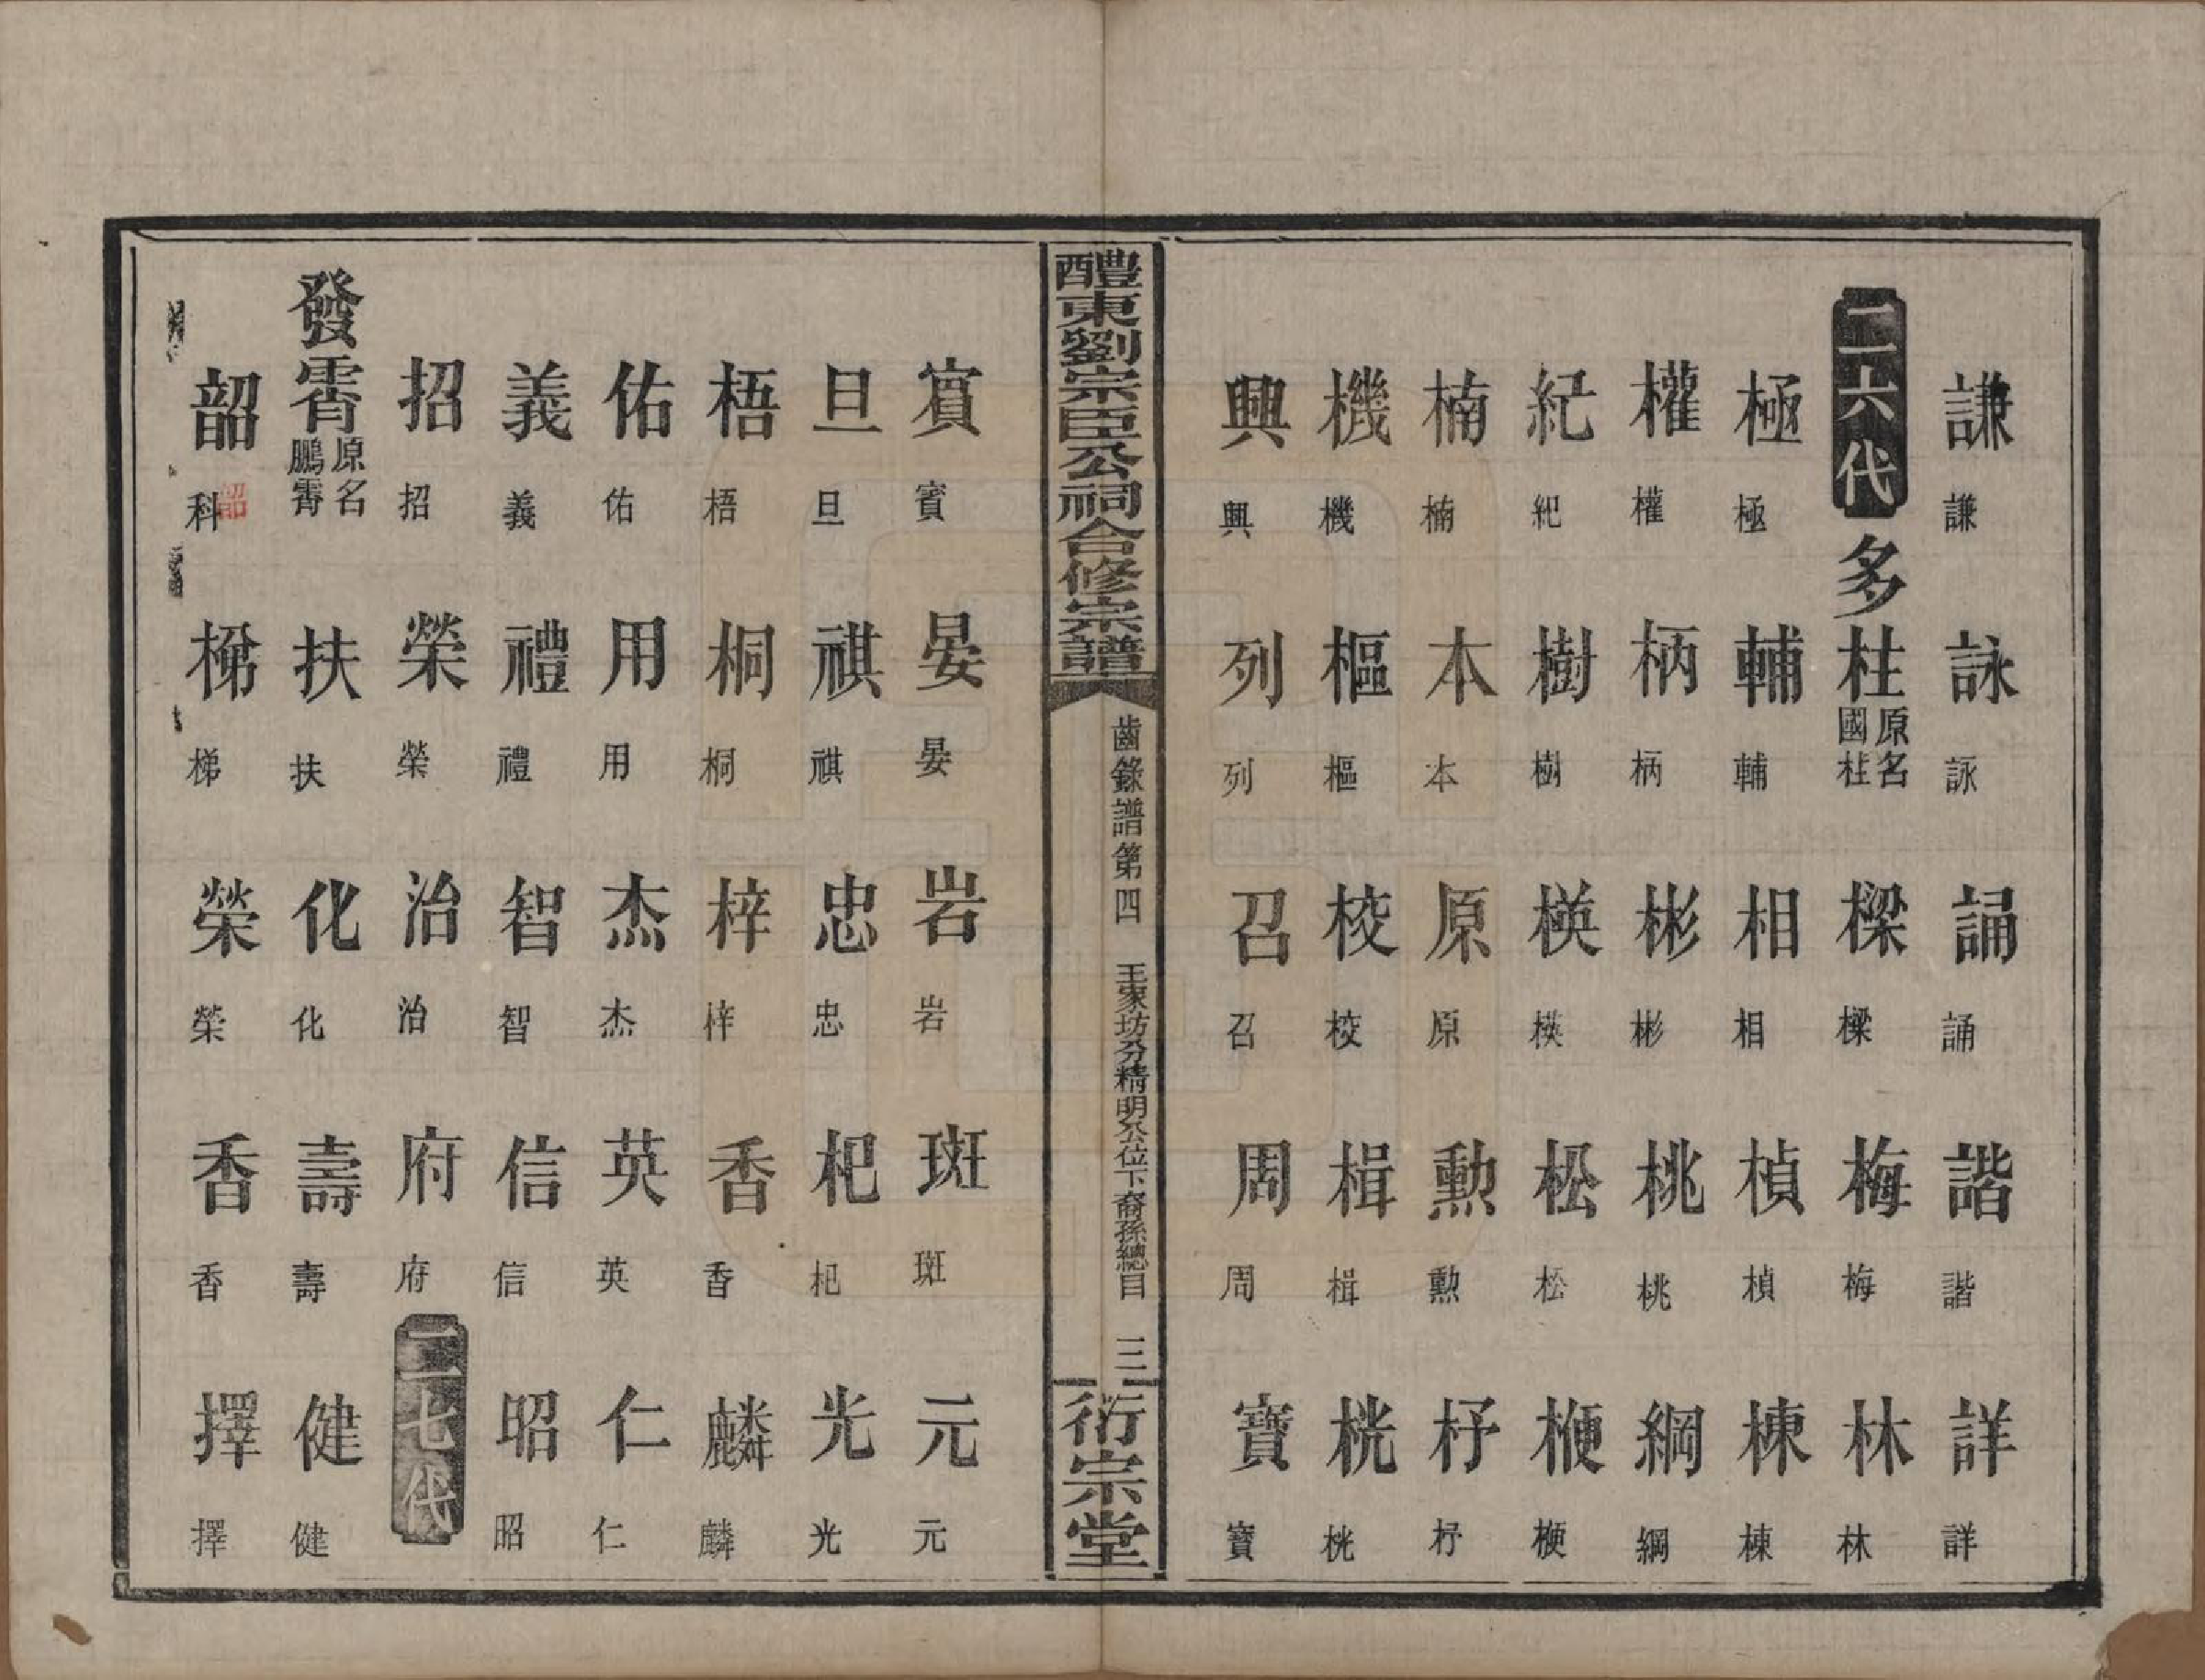 謙 謙 詠 詠 誦 誦 諧 諧 詳 詳
二六代 多柱 原名國柱 樑 樑 梅 梅 林 林
極 極 輔 輔 相 相 楨 楨 棟 棟
權 權 柄 柄 彬 彬 桃 桃 綱 綱
紀 紀 樹 樹 模 模 松 松 梗 梗
楠 楠 本 本 原 原 勲 勲 杼 杼
機 機 樞 樞 校 校 楫 楫 桄 桄
興 興 列 列 召 召 周 周 寶 寶
醴東劉宗臣公祠合修宗譜 齒錄譜第四 王家坊分精明公位下裔孫總目 三 衍宗堂
賔 賔 晏 晏 岩 岩 斑 斑 元 元
旦 旦 祺 祺 忠 忠 杞 杞 光 光
梧 梧 桐 桐 梓 梓 香 香 麟 麟
佑 佑 用 用 杰 杰 英 英 仁 仁
義 義 禮 禮 智 智 信 信 昭 昭
招 招 榮 榮 治 治 府 府 二七代
發霄 原名鵬霄 扶 扶 化 化 壽 壽 健 健
韶 科 韶 梯 梯 榮 榮 香 香 擇 擇